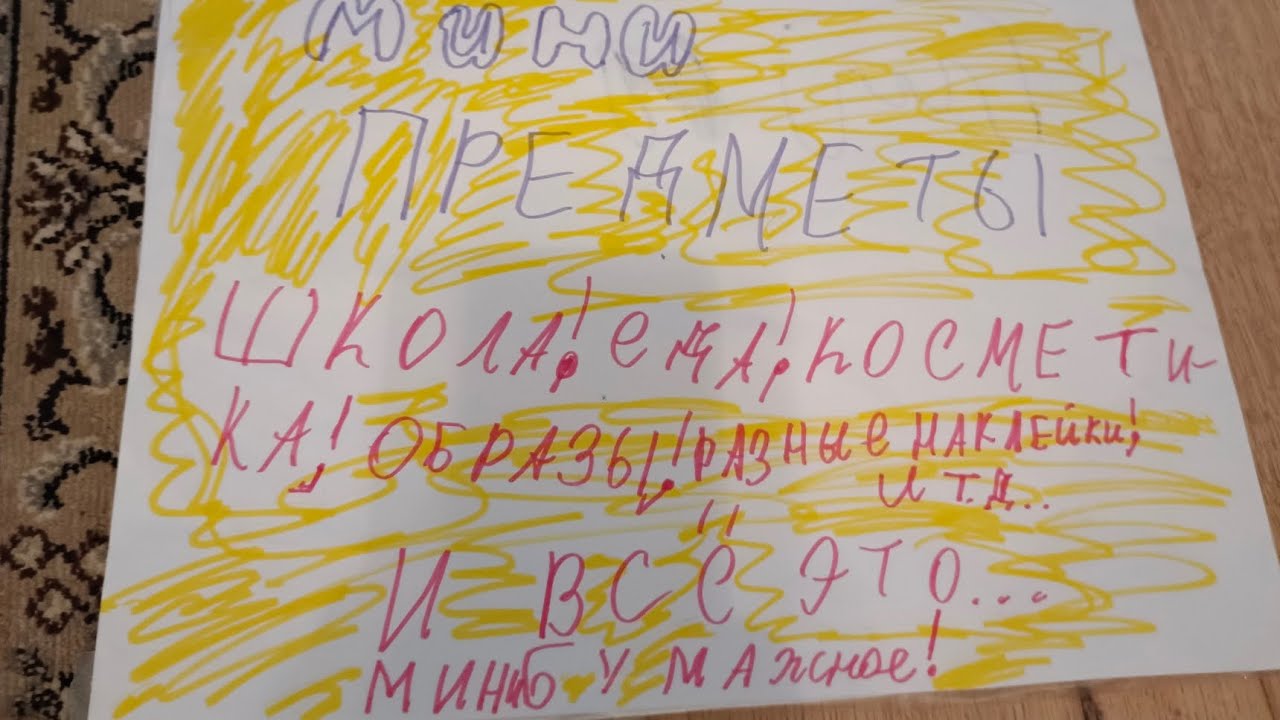 мини
ПРЕДМЕТЫ
ШКОЛА!, еДА!, КОСМЕТИ-
КА!, ОБРАЗЫ!, РАЗНЫе НАКЛЕЙКИ!,
И Т.Д...
И ВСЁ ЭТО...
МИНИБУМАжное!